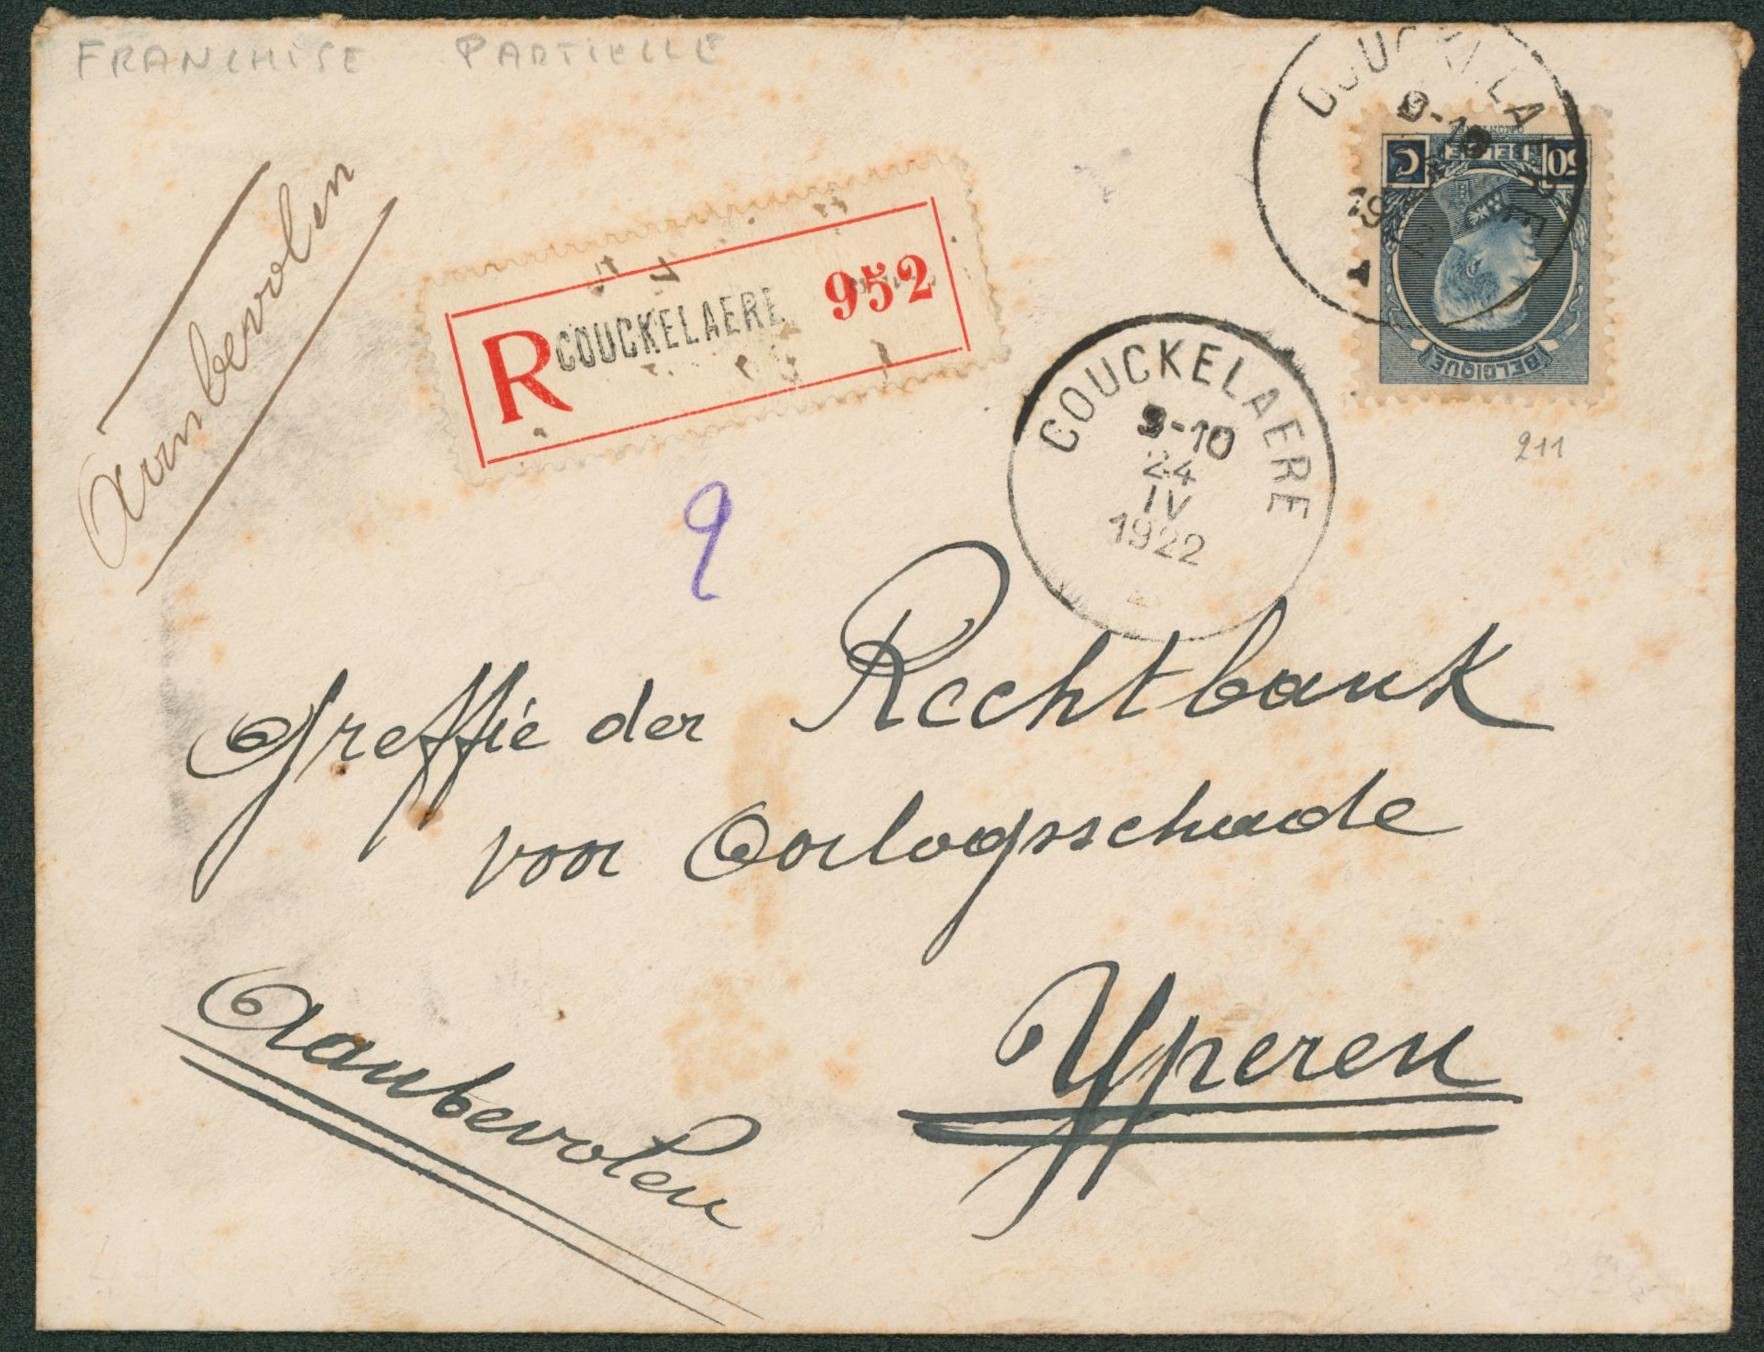 FRANCHISE PARTIELLE
Aanbevolen
R COUCKELAERE 952
9-10
50 C
BELGIQUE
COUCKELAERE
9-10
24
IV
1922
211
9
Greffie der Rechtbank
voor Oorlogsschade
Yperen
Aanbevolen